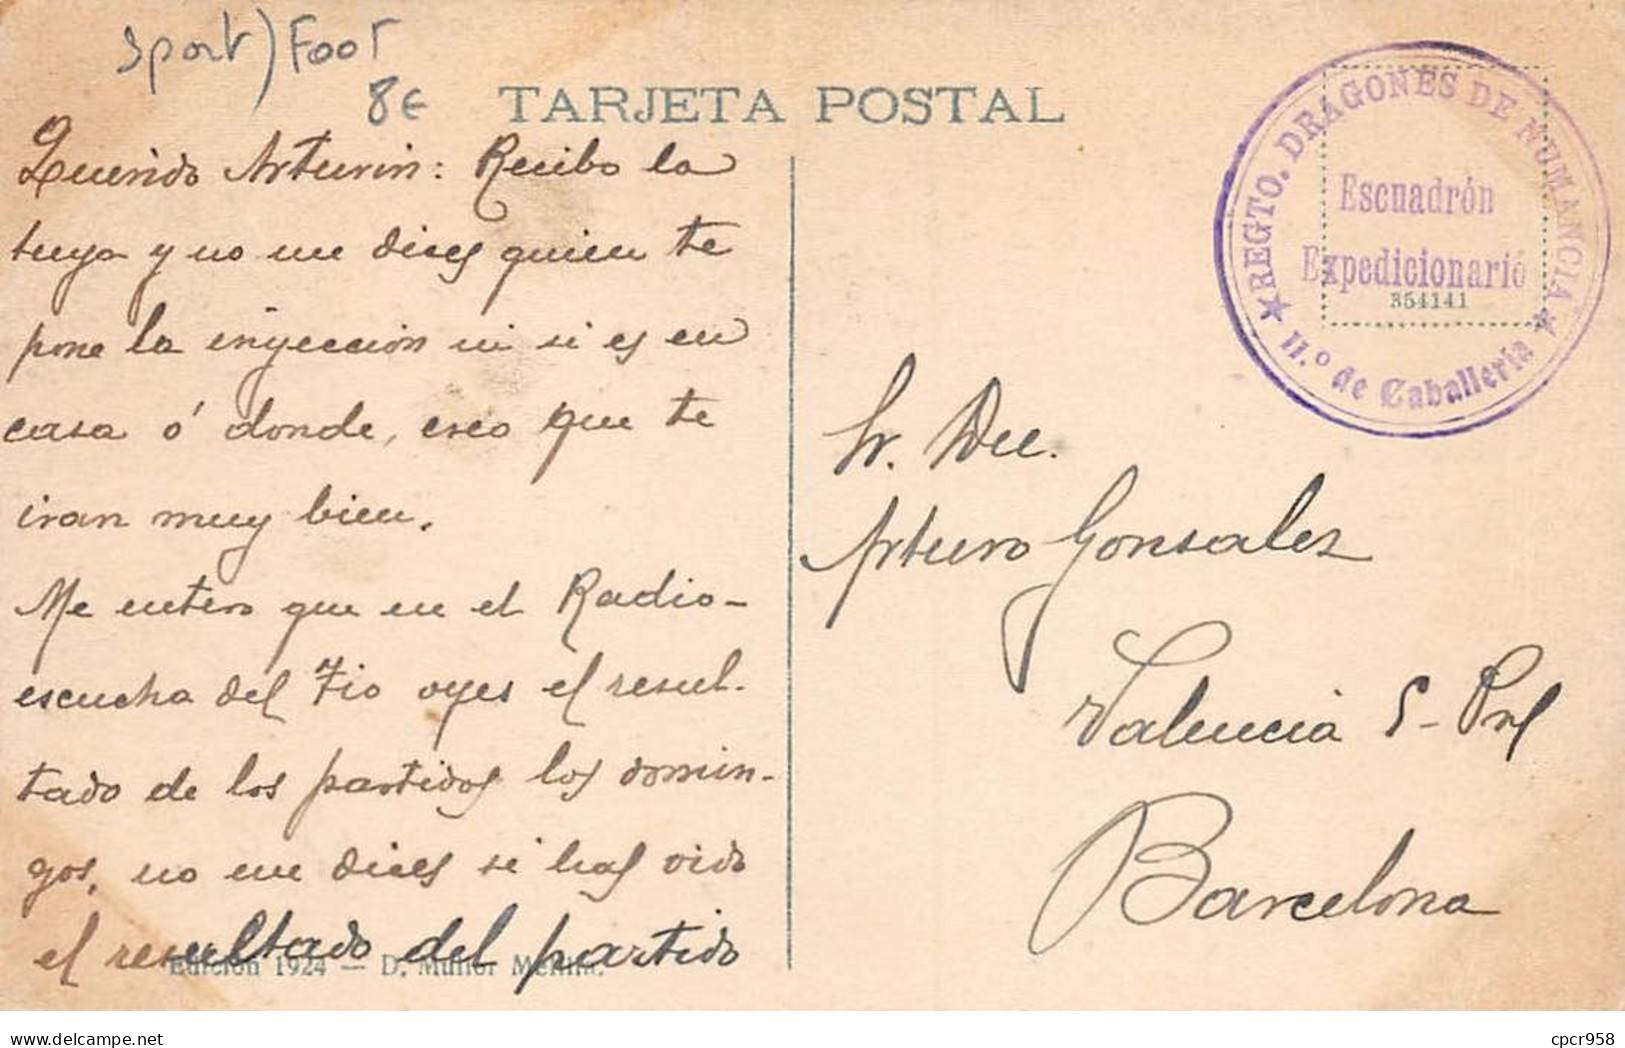 Sport) Foot
8€
TARJETA POSTAL
Querido Arturin: Recibo la
tuya y no me dices quien te
pone la inyeccion ni si es en
casa ó donde, creo que te
iran muy bien.
Me entero que en el Radio-
escucha del Tio oyes el resul-
tado de los partidos los domin-
gos, no me dices si has oido
el resultado del partido
Edición 1924 - D.
★ REGTO. DRAGONES DE NUMANCIA ★
Escuadrón
Expedicionario
354141
11.º de Caballería
Sr. Dn.
Arturo Gonsalez
Valencia 5 - Pral
Barcelona
delcampe.net
cpcr958